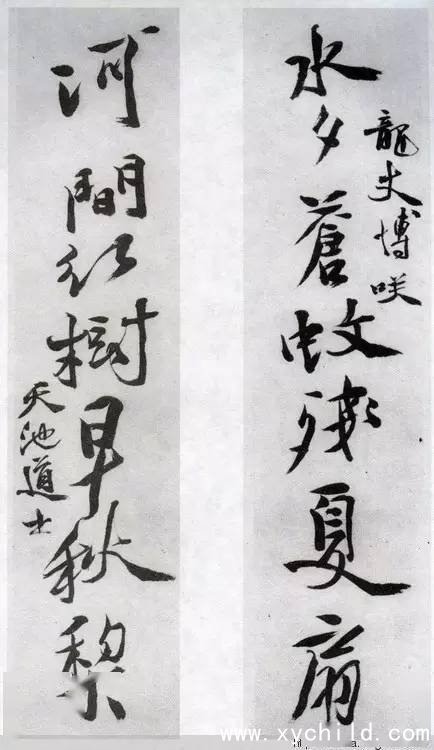 龍丈博咲
水夕蒼蚊殘夏扇
河間紅樹早秋棃
天池道士
www.xychild.com